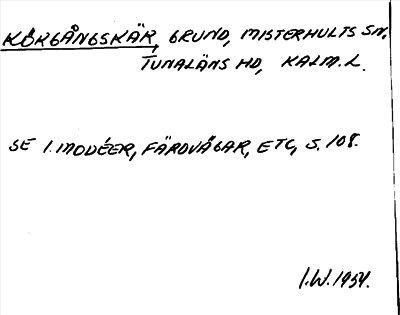 KÖRGÅNGSKÄR, GRUND, MISTERHULTS SN,
TUNALÄNS HD, KALM. L.
SE I. MODÉER, FÄRDVÄGAR, ETC, S. 108.
I.W. 1954.